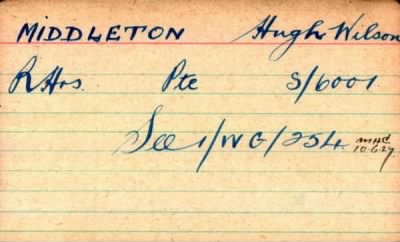 MIDDLETON Hugh Wilson
R Hrs. Pte S/6001.
See 1/WG/254. MHC
10.6.27